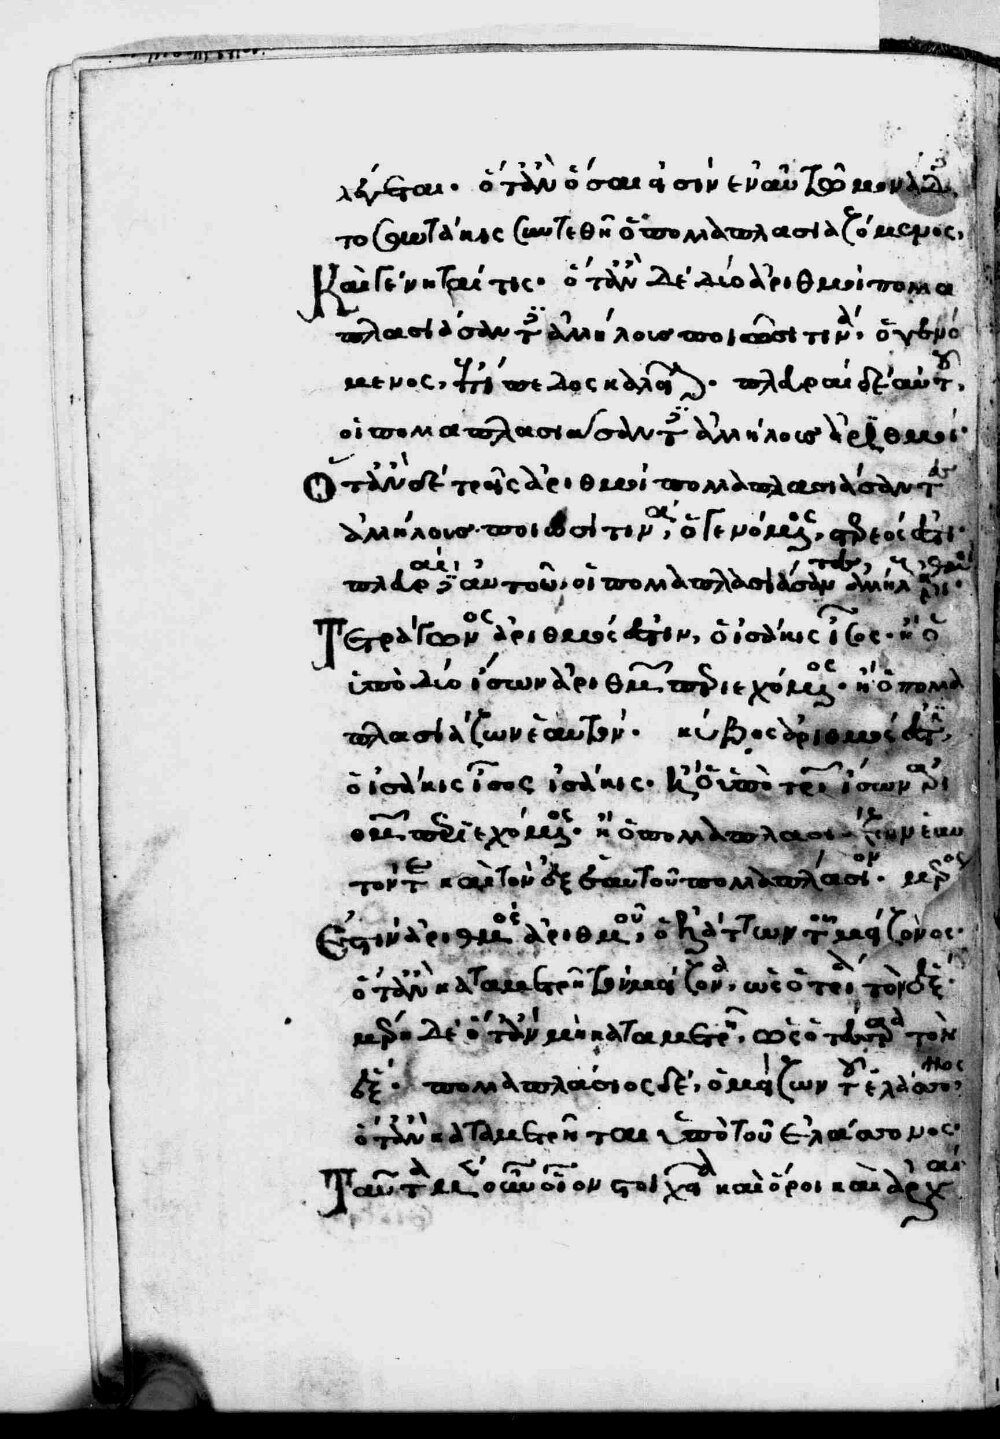 λέγεται· ὅταν ὅσαι εἰσὶν ἐν αὐτῷ μονάδες,
τοσαυτάκις συντεθῇ ὁ πολλαπλασιαζόμενος,
Καὶ γένηταί τις· ὅταν δὲ δύο ἀριθμοὶ πολλα
πλασιάσαντες ἀλλήλους ποιῶσί τινα, ὁ γενό
μενος, ἐπίπεδος καλεῖται· πλευραὶ δὲ αὐτοῦ,
οἱ πολλαπλασιάσαντες ἀλλήλους ἀριθμοί·
Ὅταν δὲ τρεῖς ἀριθμοὶ πολλαπλασιάσαντες
ἀλλήλους ποιῶσί τινα, ὁ γενόμενος, στερεός ἐστι·
πλευραὶ αὐτοῦ, οἱ πολλαπλασιάσαντες ἀλλήλους
Τετράγωνος ἀριθμός ἐστιν, ὁ ἰσάκις ἴσος· ἢ ὁ
ὑπὸ δύο ἴσων ἀριθμῶν περιεχόμενος· ἢ ὁ πολλα
πλασιάζων ἑαυτόν· κύβος ἀριθμός ἐστιν,
ὁ ἰσάκις ἴσος ἰσάκις· καὶ ὁ ὑπὸ τριῶν ἴσων ἀρι
θμῶν περιεχόμενος· ἢ ὁ πολλαπλασιάζων ἑαυ
τόν τε καὶ τὸν ἐξ ἑαυτοῦ πολλαπλάσιον· μέρος
Ἐστὶν ἀριθμὸς ἀριθμοῦ, ὁ ἐλάττων τοῦ μείζονος·
ὅταν καταμετρῇ τὸν μείζονα, ὡς ὁ τρία τὸν ἕξ·
μέρη δὲ ὅταν μὴ καταμετρῇ, ὡς ὁ τέσσαρα τὸν
ἕξ· πολλαπλάσιος δέ, ὁ μείζων τοῦ ἐλάσσονος,
ὅταν καταμετρῆται ὑπὸ τοῦ ἐλάσσονος·
Ταῦτα μὲν οὖν οἷον στοιχεῖα καὶ ὅροι καὶ ἀρχαὶ